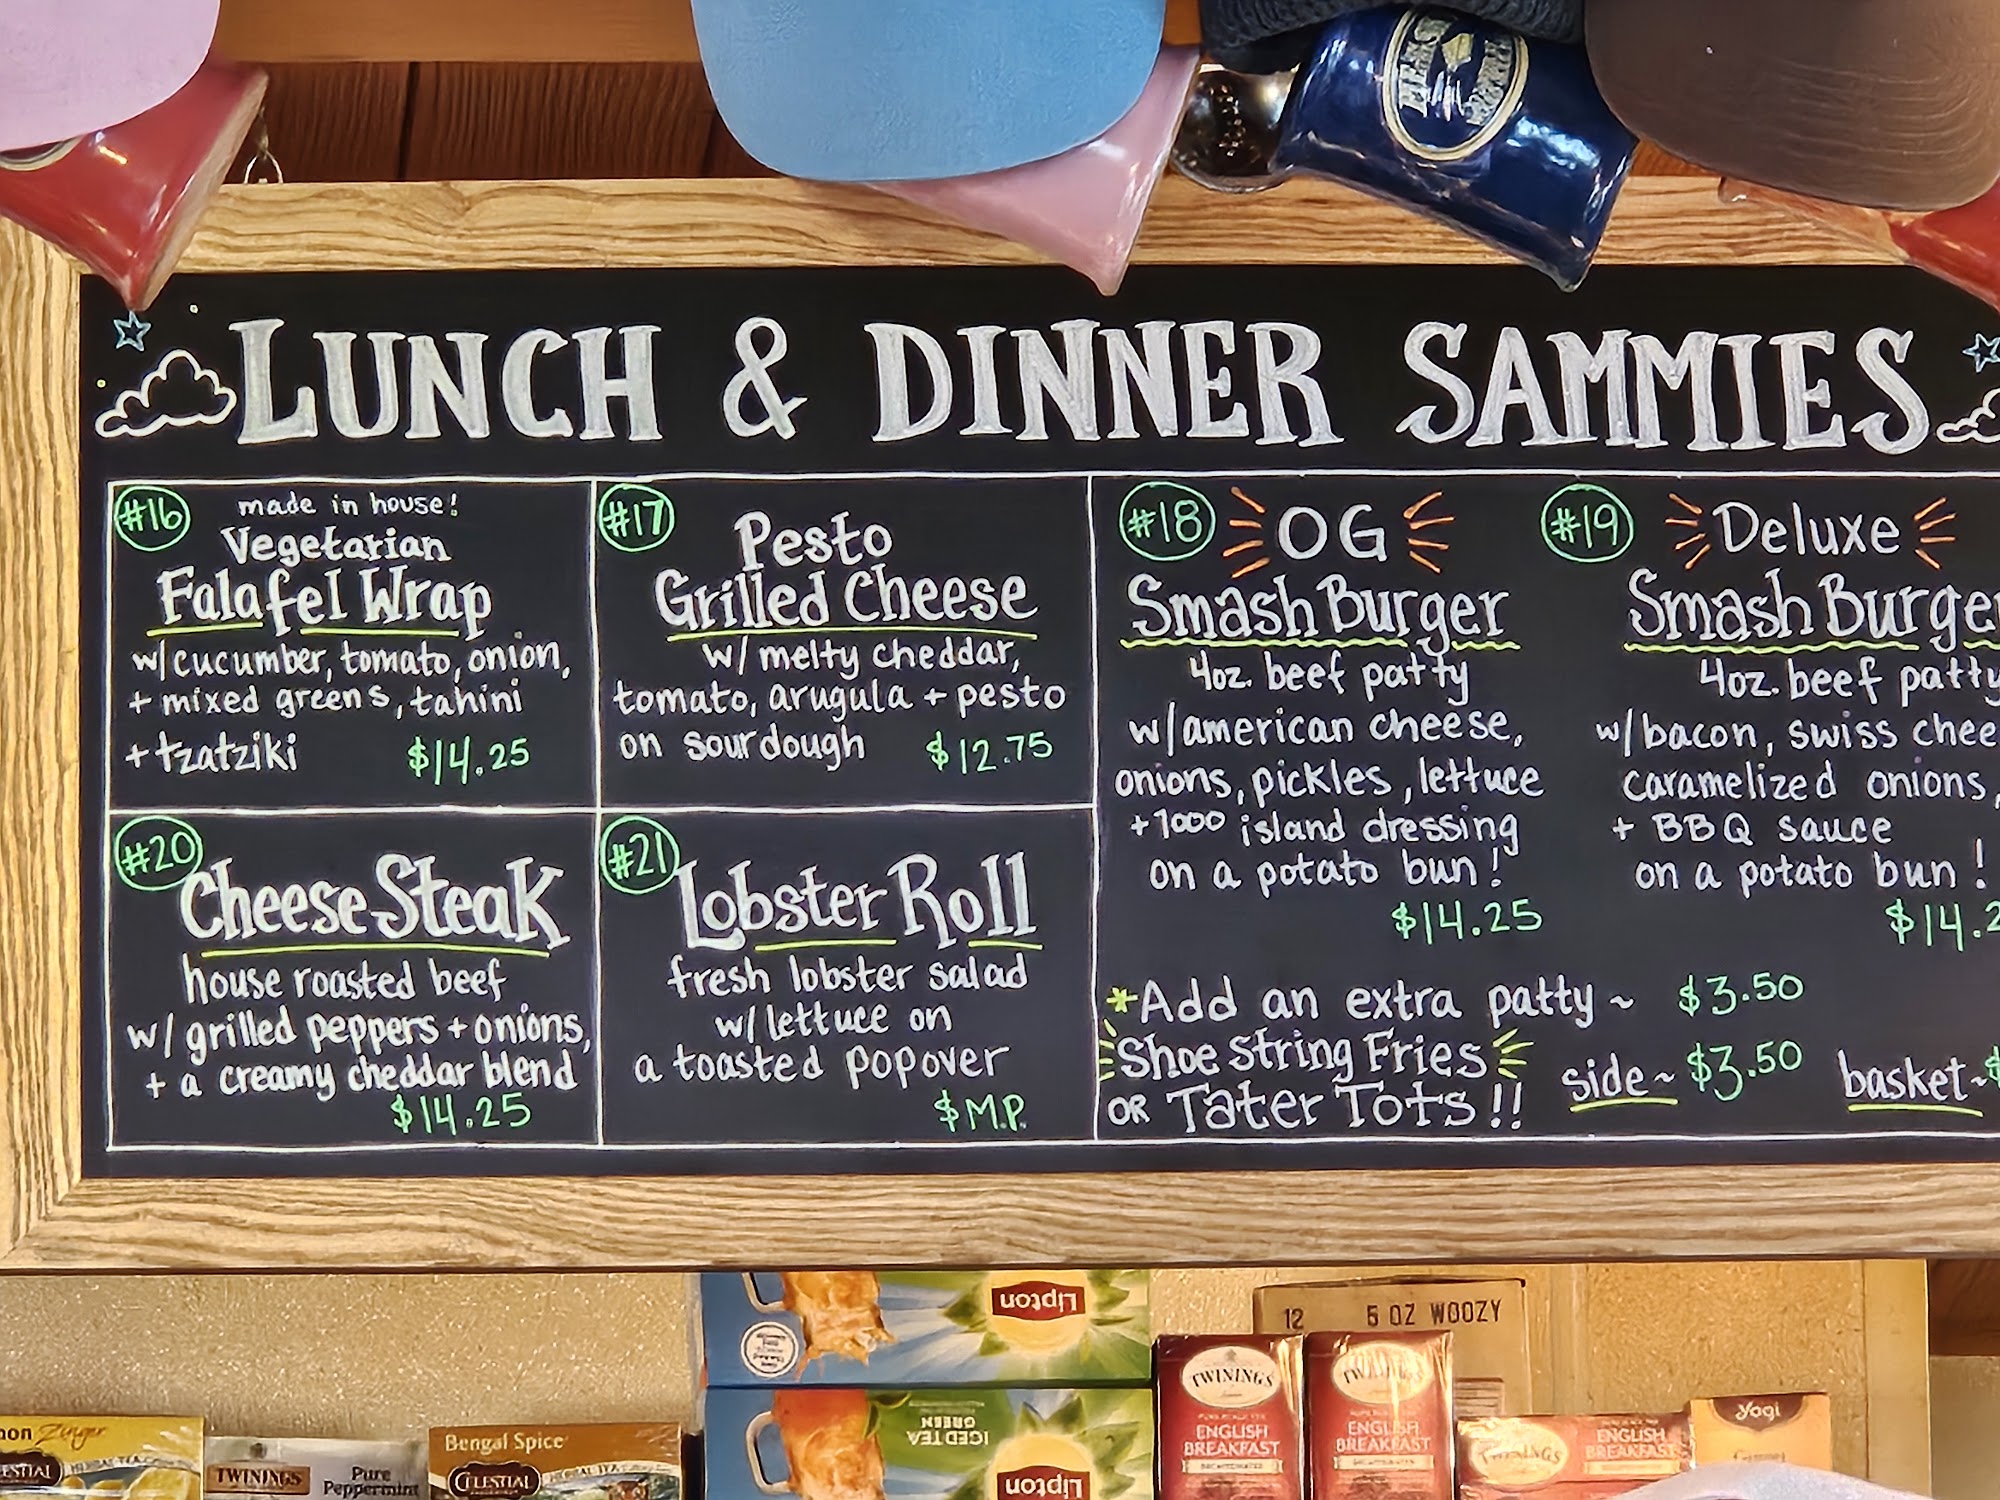 LUNCH & DINNER SAMMIES
#16
made in house!
Vegetarian
Falafel Wrap
w/cucumber, tomato, onion,
+ mixed greens, tahini
+ tzatziki $14.25
#17
Pesto
Grilled Cheese
w/ melty cheddar,
tomato, arugula + pesto
on sourdough $12.75
#18 OG
Smash Burger
4oz. beef patty
w/american cheese,
onions, pickles, lettuce
+ 1000 island dressing
on a potato bun!
$14.25
#19 Deluxe
Smash Burge
4oz. beef patty
w/bacon, swiss chee
caramelized onions,
+ BBQ sauce
on a potato bun!
$14.2
#20
Cheese Steak
house roasted beef
w/ grilled peppers + onions,
+ a creamy cheddar blend
$14.25
#21
Lobster Roll
fresh lobster salad
w/ lettuce on
a toasted popover
$M.P.
*Add an extra patty ~ $3.50
Shoe String Fries
OR Tater Tots!!
side~ $3.50 basket~$
Lipton
12 5 OZ WOOZY
Lipton
ICED TEA
GREEN
TWININGS
ENGLISH
BREAKFAST
DECAFFEINATED
TWININGS
ENGLISH
BREAKFAST
TWININGS
ENGLISH
BREAKFAST
yogi
mon Zinger
ESTIAL
TWININGS
Pure
Peppermint
Bengal Spice
CELESTIAL